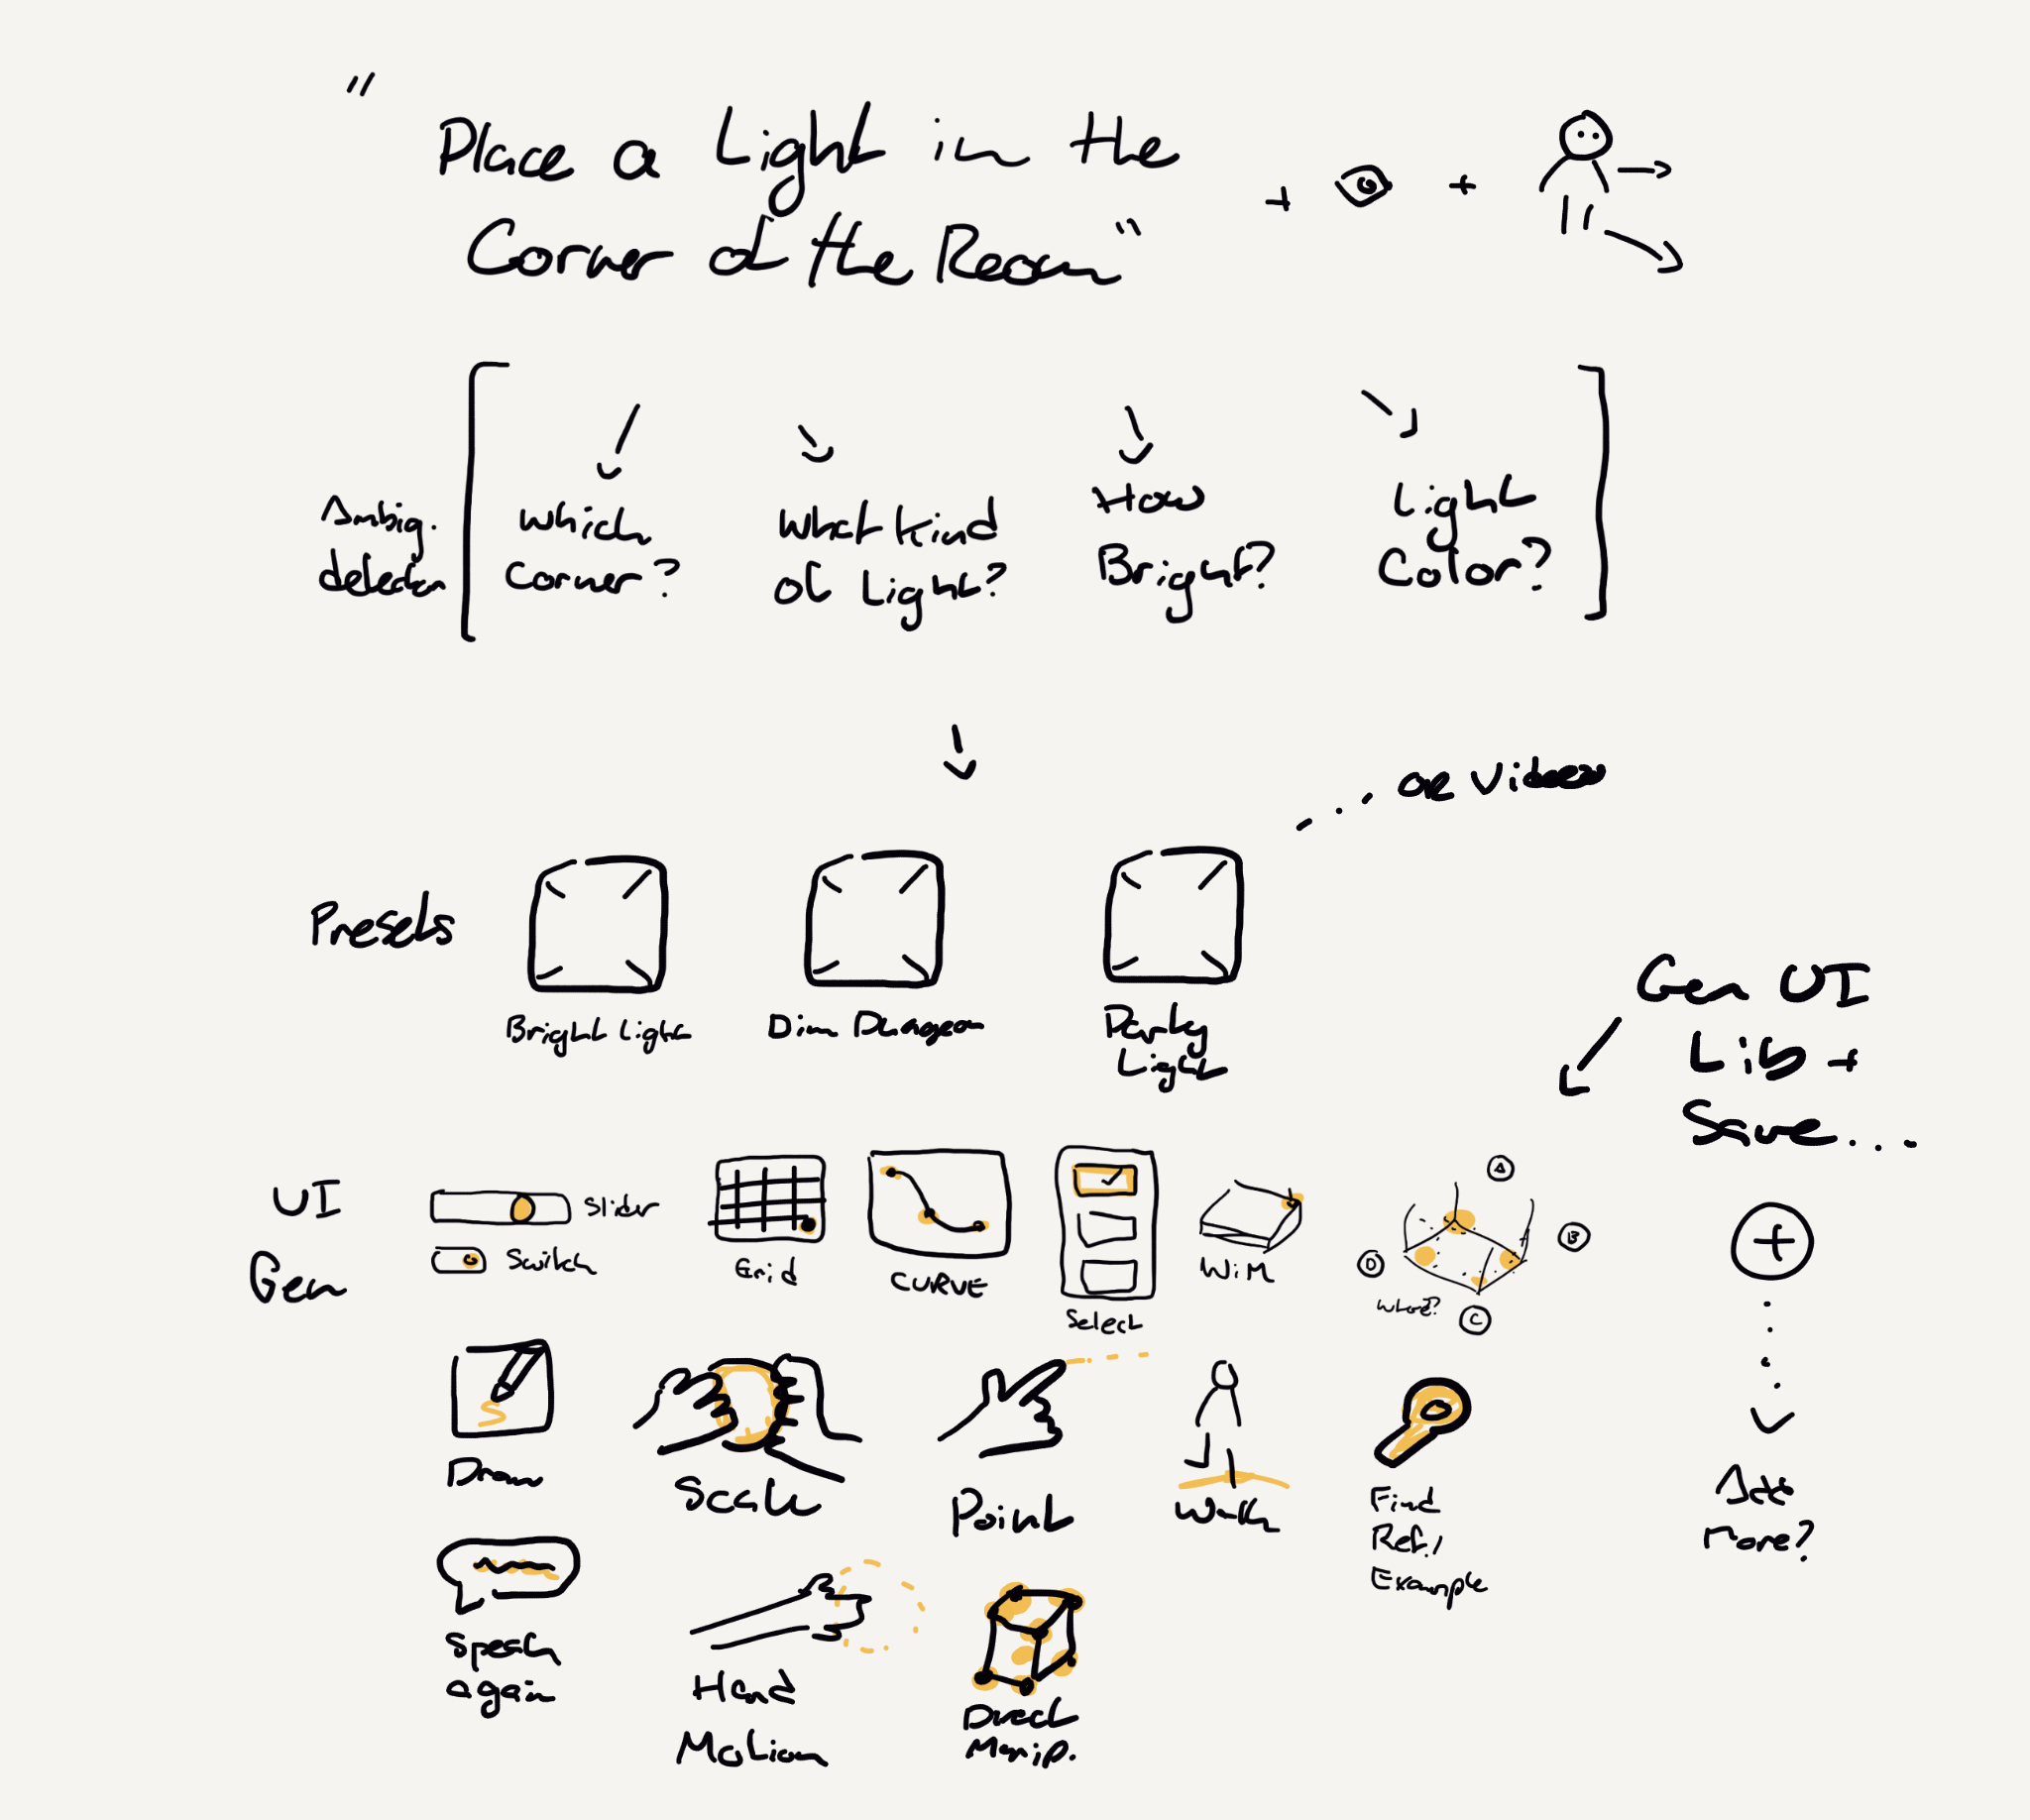 "Place a Light in the
Corner of the Room"
+ +
Ambig.
detection
Which
Corner?
What kind
of Light?
How
Bright?
Light
Color?
... or videos
Presets
Bright Light
Dim Dungeon
Party
Light
Gen UI
Lib +
Save...
UI
Gen
Slider
Switch
Grid
CURVE
Select
WiM
A
B
C
D
Where?
+
Draw
Scale
Point
Walk
Find
Ref./
Example
Add
more?
Speak
again
Hand
Motion
Direct
Manip.